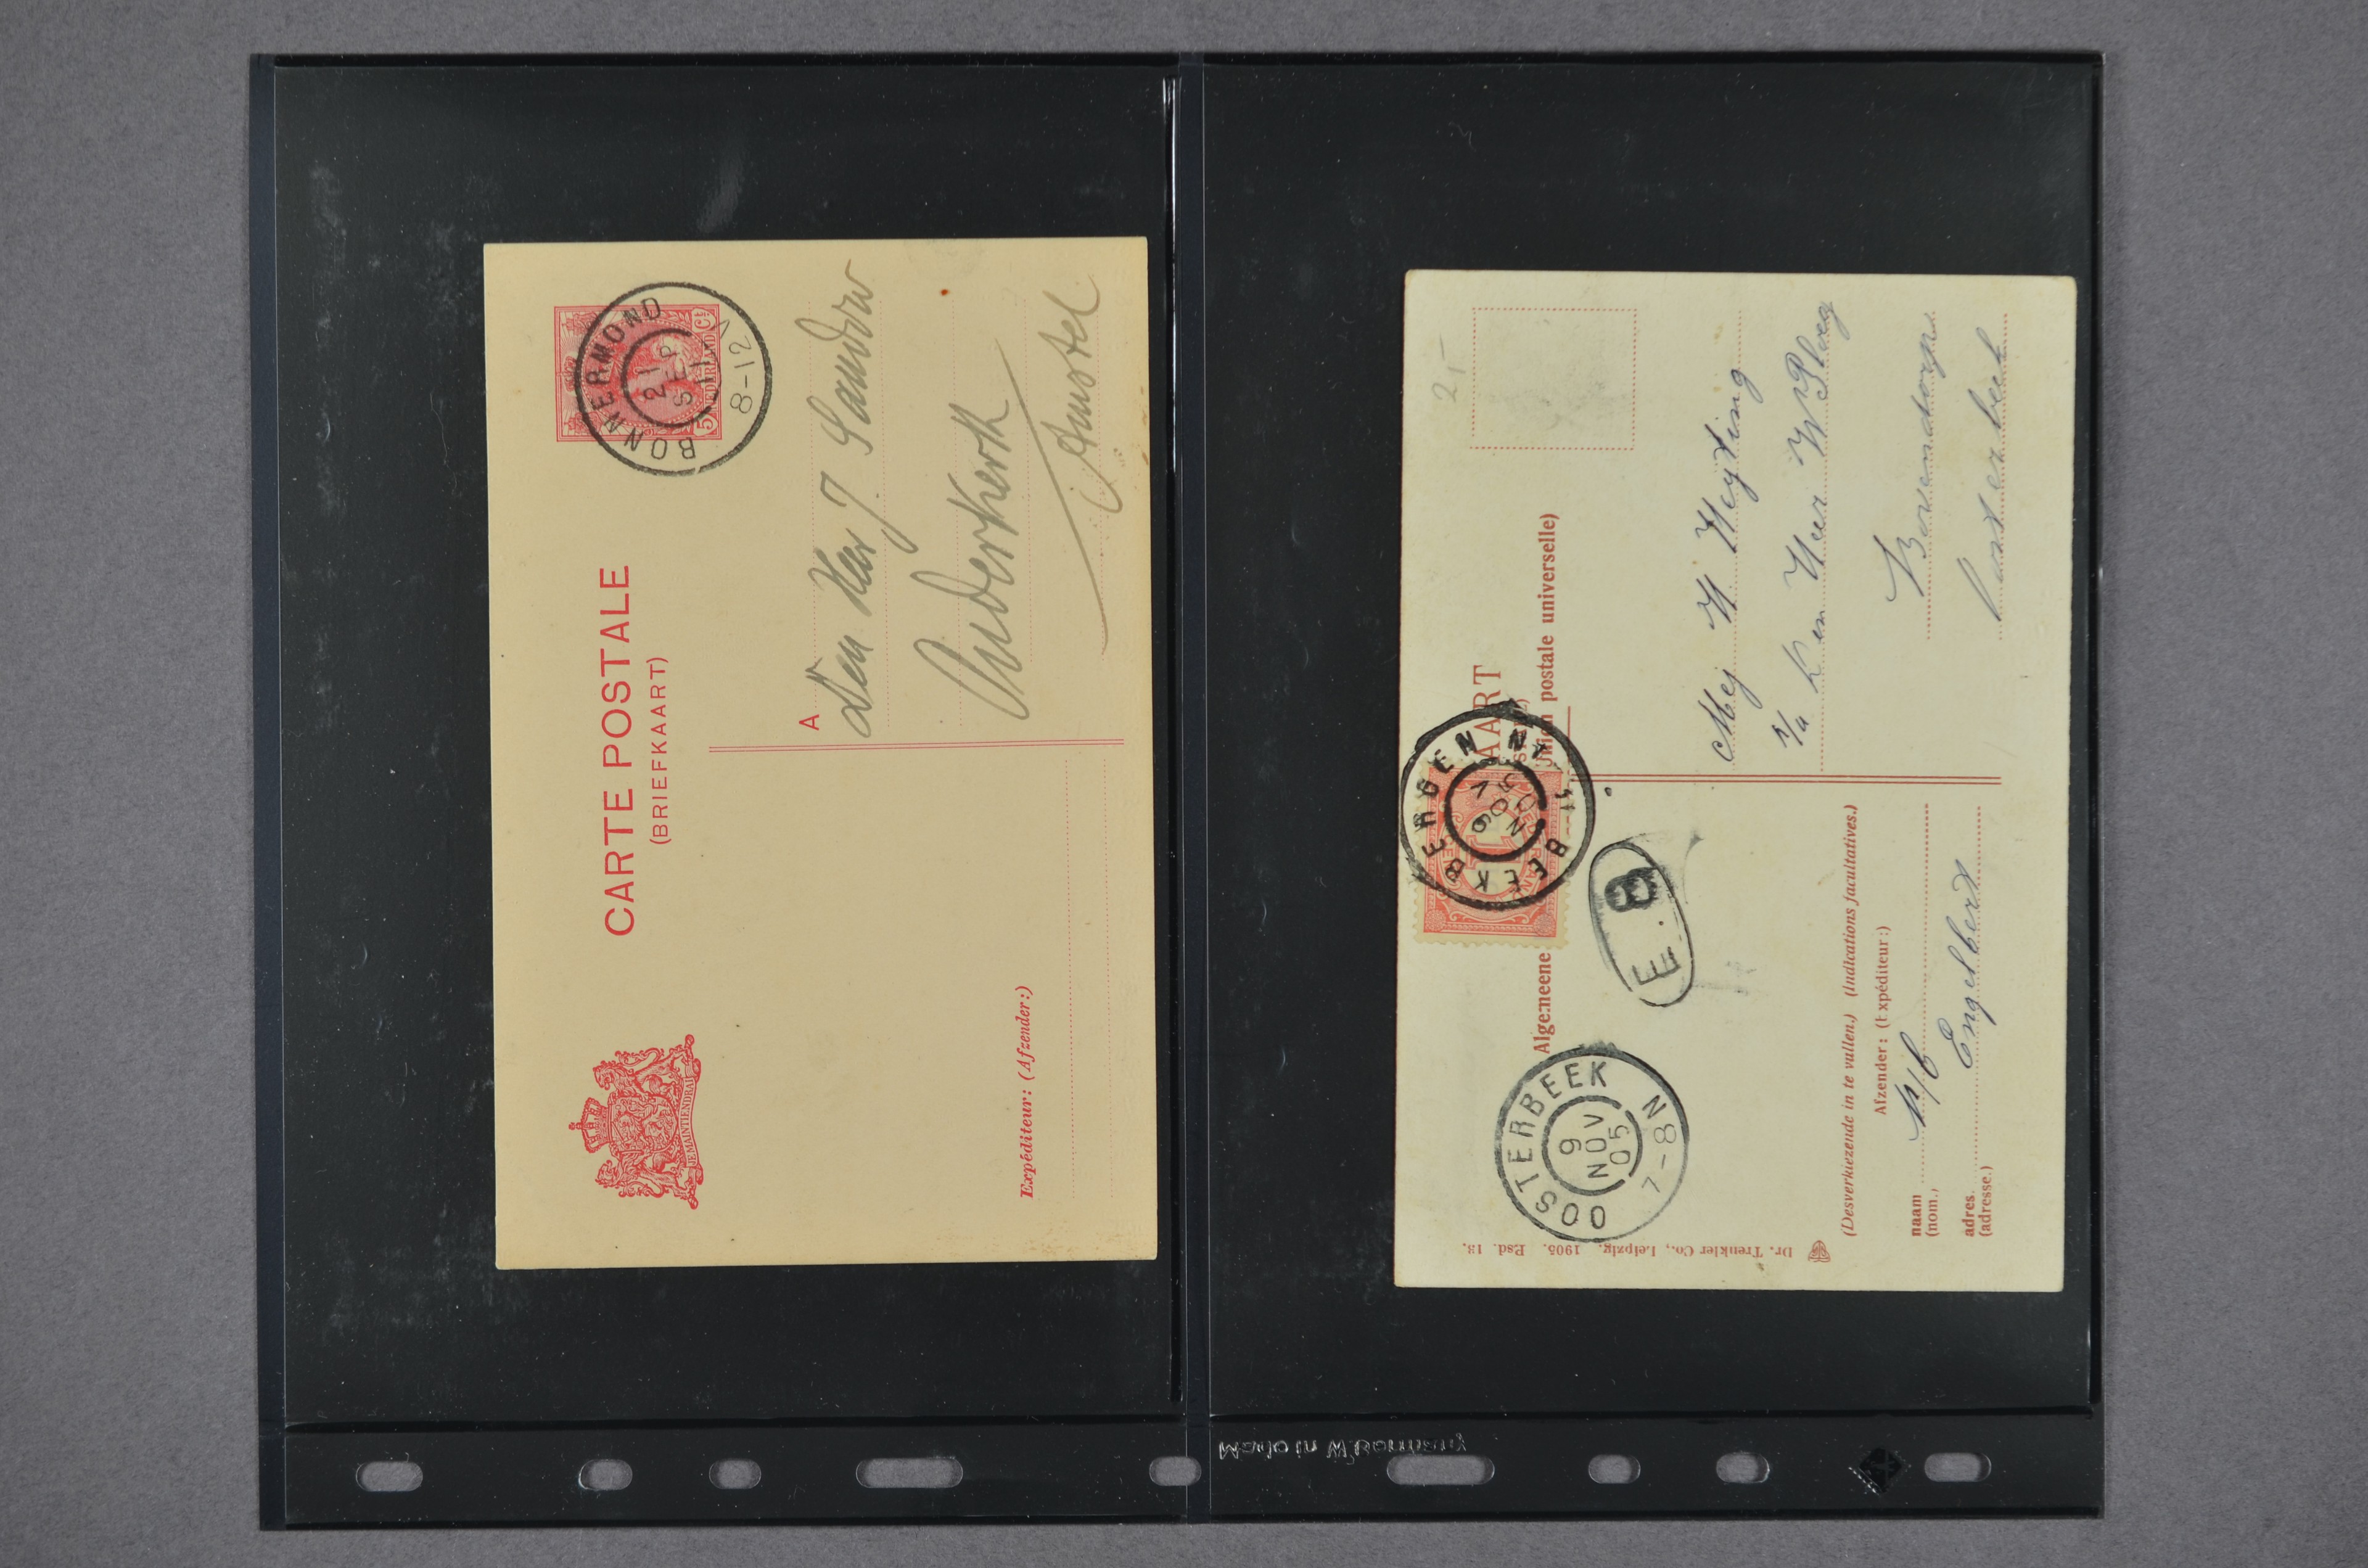 CARTE POSTALE
(BRIEFKAART)
BONNERMOND
21
SEP
11
8-12 V
5
NEDERLAND
Ct
JE MAINTIENDRAI
A
den Heer J.
Ouderkerk
Amstel
Expéditeur: (Afzender:)
AART
Algemeene
postale universelle)
BEEKBERGEN
9
NOV
05
E. 8
OOSTERBEEK
9
NOV
05
7-8 N
2,-
Mej H Heyting
Den Heer W Ploeg
Oosterbeek
(Desverkiezende in te vullen.) (Indications facultatives.)
Afzender: (Expéditeur:)
naam
(nom.)
adres.
(adresse.)
Engelbert
Dr. Trenkler Co., Leipzig. 1905. Esd. 13.
Made in W. Germany